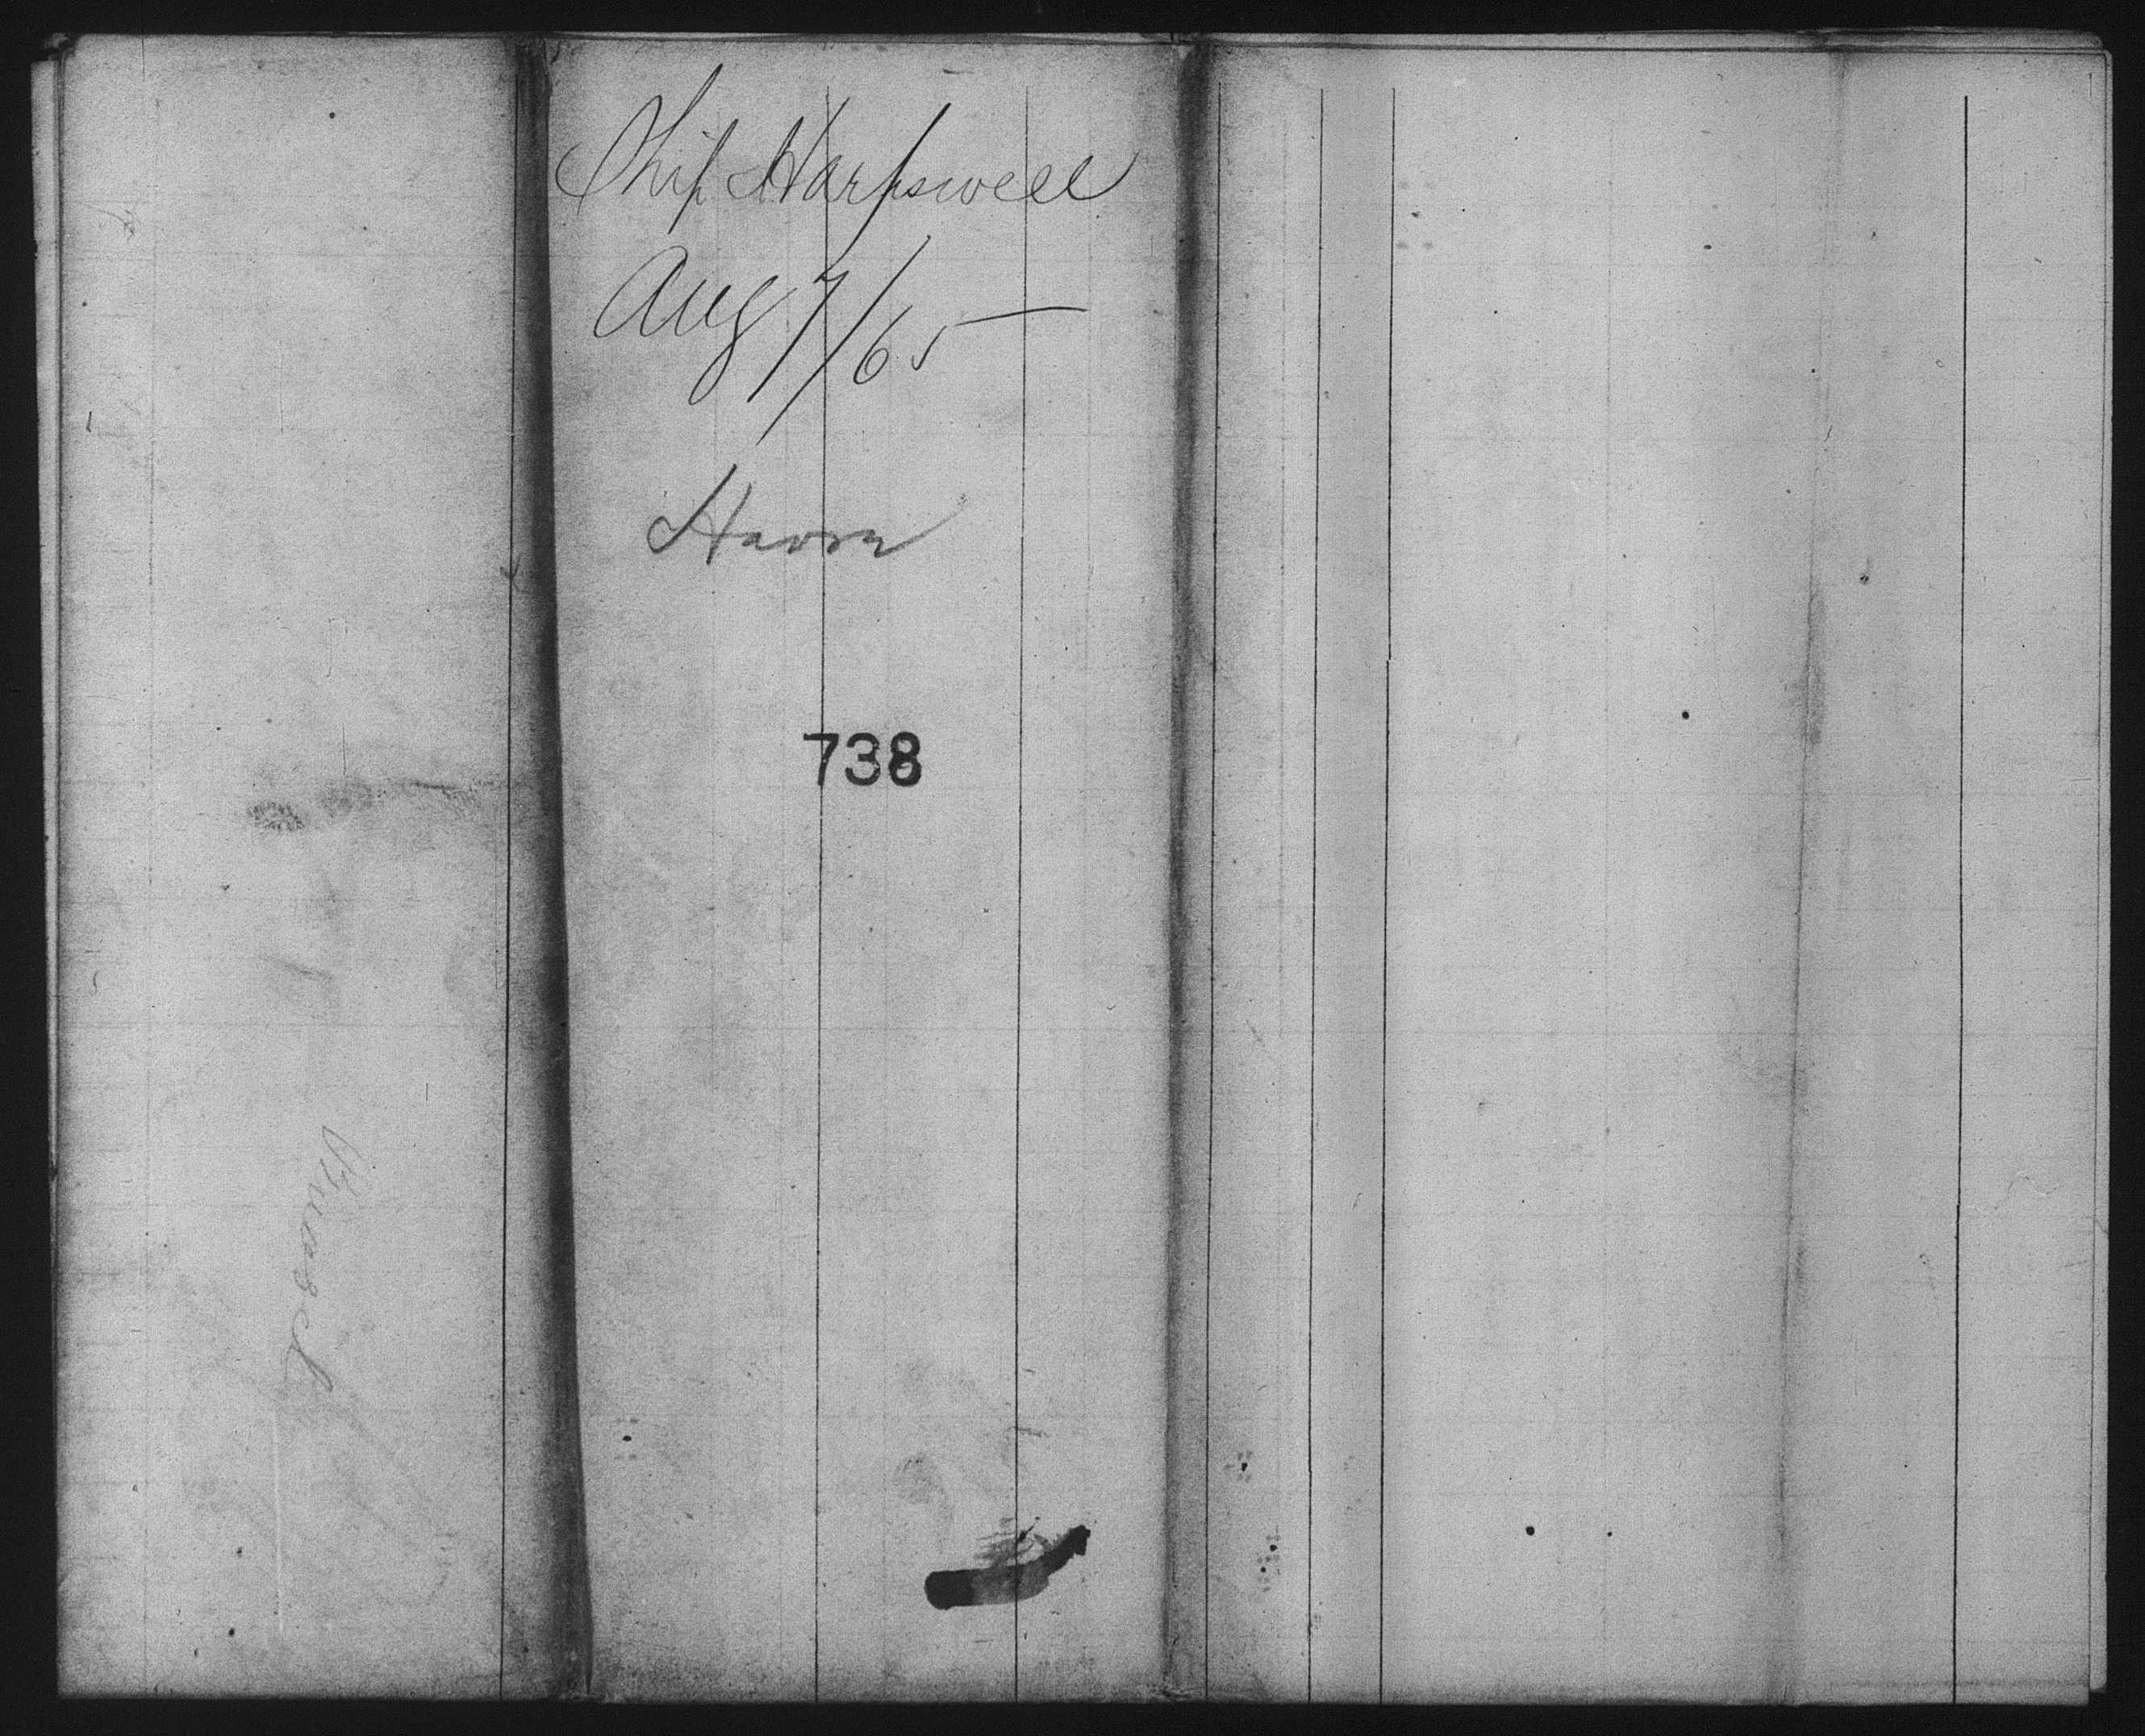 Ship Harpswell
Aug 7/65
Havre
738